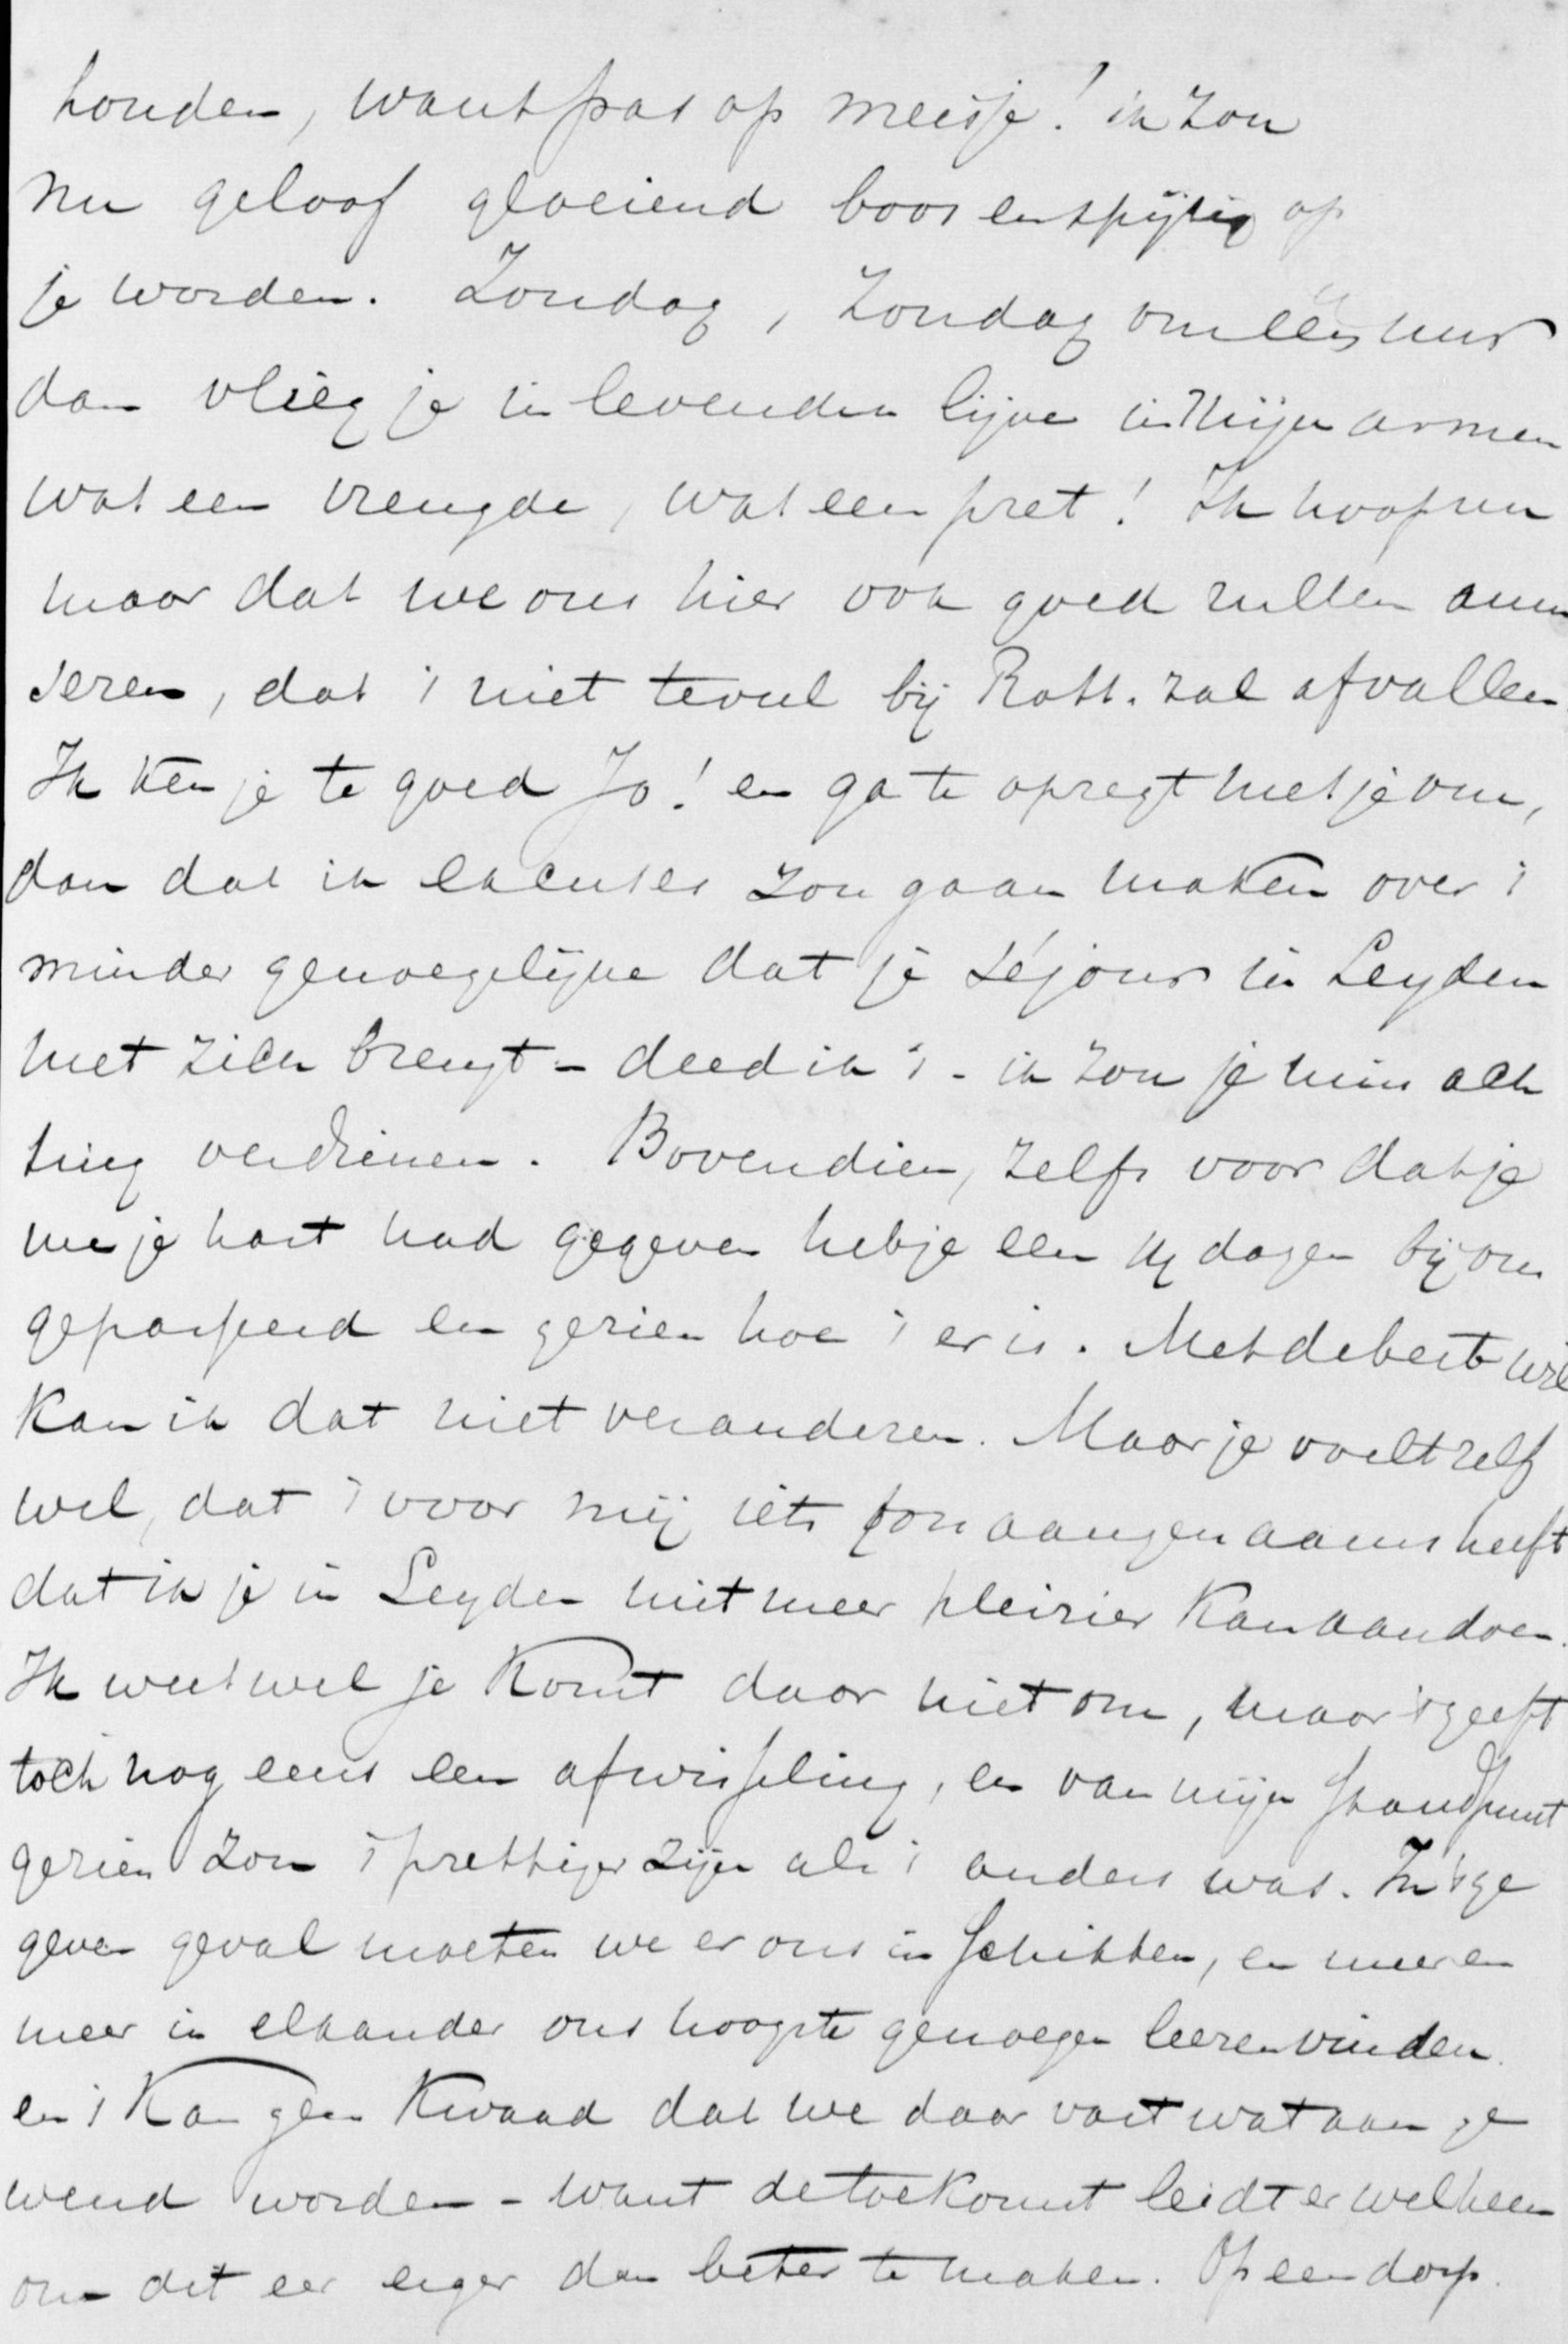 houden, want pas op meisje! ik zou
nu geloof gloeiend boos en spijtig op
je worden. Zondag, Zondag om één uur
dan vlieg je in levenden lijve in mijn armen
wat een vreugde, wat een pret! Ik hoop nu
maar dat we ons hier ook goed zullen amu
seren, dat 't niet teveel bij Rott. zal afvallen
Ik ken je te goed Jo! en ga te opregt met je om,
dan dat ik excuses zou gaan maken over 't
minder genoegelijke dat je séjour in Leyden
met zich brengt - deed ik 't - ik zou je min ach
ting verdienen. Bovendien, zelfs voor dat je
me je hart had gegeven heb je een dagen bij ons
gepasseerd en gezien hoe 't er is. Met de beste wil
kan ik dat niet veranderen. Maar je voelt zelf
wel, dat 't voor mij iets onaangenaams heeft
dat ik je in Leyden niet meer pleizier kan aandoen.
Ik weet wel je komt daar niet om, maar 't geeft
toch nog eens een afwisseling, en van mijn standpunt
gezien zou 't prettiger zijn als 't anders was. In 't ge
geven geval moeten we er ons in schikken, en meer en
meer in elkander ons hoogste genoegen leeren vinden.
en 't kan geen kwaad dat we daar vast wat aan ge
wend worden - want de toekomst leidt er wel heen
om dit eer erger dan beter te maken. Op een dorp.